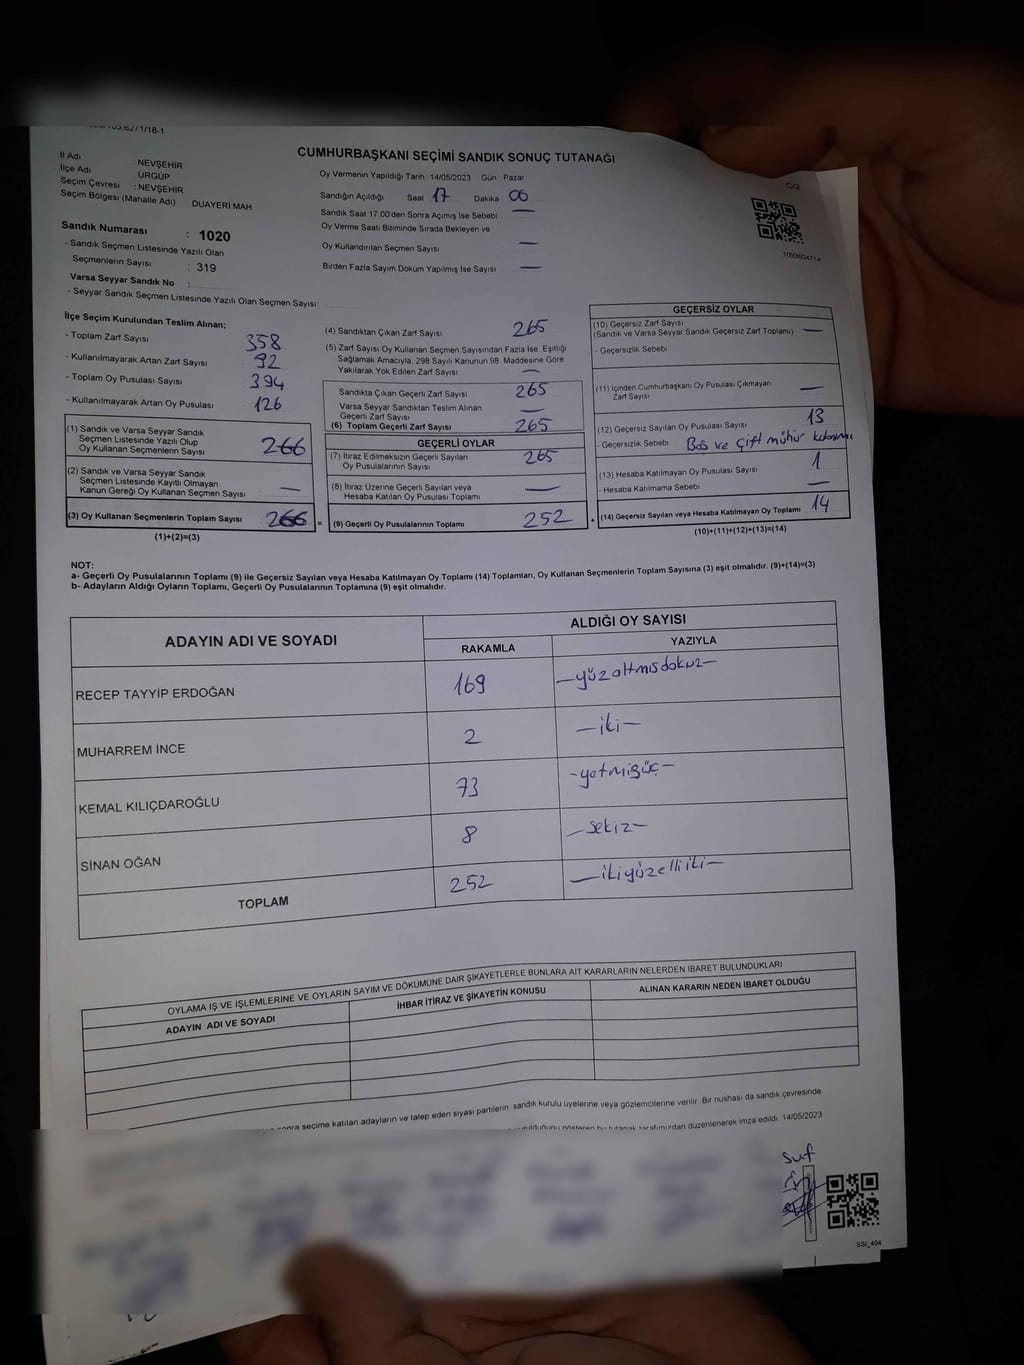 CUMHURBAŞKANI SEÇİMİ SANDIK SONUÇ TUTANAĞI
C/2
1093604714
İl Adı : NEVŞEHİR
İlçe Adı : ÜRGÜP
Seçim Çevresi : NEVŞEHİR
Seçim Bölgesi (Mahalle Adı) DUAYERİ MAH
Sandık Numarası : 1020
- Sandık Seçmen Listesinde Yazılı Olan
Seçmenlerin Sayısı : 319
Varsa Seyyar Sandık No :
- Seyyar Sandık Seçmen Listesinde Yazılı Olan Seçmen Sayısı:
Oy Vermenin Yapıldığı Tarih :14/05/2023 Gün : Pazar
Sandığın Açıldığı Saat 17 Dakika 06
Sandık Saat 17.00'den Sonra Açımış İse Sebebi —
Oy Verme Saati Bitiminde Sırada Bekleyen ve
Oy Kullandırılan Seçmen Sayısı —
Birden Fazla Sayım Döküm Yapılmış İse Sayısı —
İlçe Seçim Kurulundan Teslim Alınan;
- Toplam Zarf Sayısı 358
- Kullanılmayarak Artan Zarf Sayısı 92
- Toplam Oy Pusulası Sayısı 394
- Kullanılmayarak Artan Oy Pusulası 126
(1) Sandık ve Varsa Seyyar Sandık
Seçmen Listesinde Yazılı Olup
Oy Kullanan Seçmenlerin Sayısı 266
(2) Sandık ve Varsa Seyyar Sandık
Seçmen Listesinde Kayıtlı Olmayan
Kanun Gereği Oy Kullanan Seçmen Sayısı —
(3) Oy Kullanan Seçmenlerin Toplam Sayısı 266 =
(1)+(2)=(3)
(4) Sandıktan Çıkan Zarf Sayısı 265
(5) Zarf Sayısı Oy Kullanan Seçmen Sayısından Fazla İse, Eşitliği
Sağlamak Amacıyla, 298 Sayılı Kanunun 98. Maddesine Göre
Yakılarak Yok Edilen Zarf Sayısı —
Sandıkta Çıkan Geçerli Zarf Sayısı 265
Varsa Seyyar Sandıktan Teslim Alınan
Geçerli Zarf Sayısı —
(6) Toplam Geçerli Zarf Sayısı 265
GEÇERLİ OYLAR
(7) İtiraz Edilmeksizin Geçerli Sayılan
Oy Pusulalarının Sayısı 265
(8) İtiraz Üzerine Geçerli Sayılan veya
Hesaba Katılan Oy Pusulası Toplamı —
(9) Geçerli Oy Pusulalarının Toplamı 252 +
GEÇERSİZ OYLAR
(10) Geçersiz Zarf Sayısı
(Sandık ve Varsa Seyyar Sandık Geçersiz Zarf Toplamı) —
- Geçersizlik Sebebi
(11) İçinden Cumhurbaşkanı Oy Pusulası Çıkmayan
Zarf Sayısı —
(12) Geçersiz Sayılan Oy Pusulası Sayısı 13
- Geçersizlik Sebebi Boş ve Çift mühür
(13) Hesaba Katılmayan Oy Pusulası Sayısı 1
- Hesaba Katılmama Sebebi —
(14) Geçersiz Sayılan veya Hesaba Katılmayan Oy Toplamı 14
(10)+(11)+(12)+(13)=(14)
NOT:
a- Geçerli Oy Pusulalarının Toplamı (9) ile Geçersiz Sayılan veya Hesaba Katılmayan Oy Toplamı (14) Toplamları, Oy Kullanan Seçmenlerin Toplam Sayısına (3) eşit olmalıdır. (9)+(14)=(3)
b- Adayların Aldığı Oyların Toplamı, Geçerli Oy Pusulalarının Toplamına (9) eşit olmalıdır.
ADAYIN ADI VE SOYADI ALDIĞI OY SAYISI
RAKAMLA YAZIYLA
RECEP TAYYİP ERDOĞAN 169 —yüzaltmışdokuz—
MUHARREM İNCE 2 —iki—
KEMAL KILIÇDAROĞLU 73 -yetmişüç-
SİNAN OĞAN 8 —sekiz—
TOPLAM 252 —ikiyüzelliiki—
OYLAMA İŞ VE İŞLEMLERİNE VE OYLARIN SAYIM VE DÖKÜMÜNE DAİR ŞİKAYETLERLE BUNLARA AİT KARARLARIN NELERDEN İBARET BULUNDUKLARI
ADAYIN ADI VE SOYADI İHBAR İTİRAZ VE ŞİKAYETİN KONUSU ALINAN KARARIN NEDEN İBARET OLDUĞU
sonra seçime katılan adayların ve talep eden siyasi partilerin sandık kurulu üyelerine veya gözlemcilerine verilir. Bir nüshası da sandık çevresinde
bu tutanak tarafımızdan düzenlenerek imza edildi. 14/05/2023
suf
SSI_404